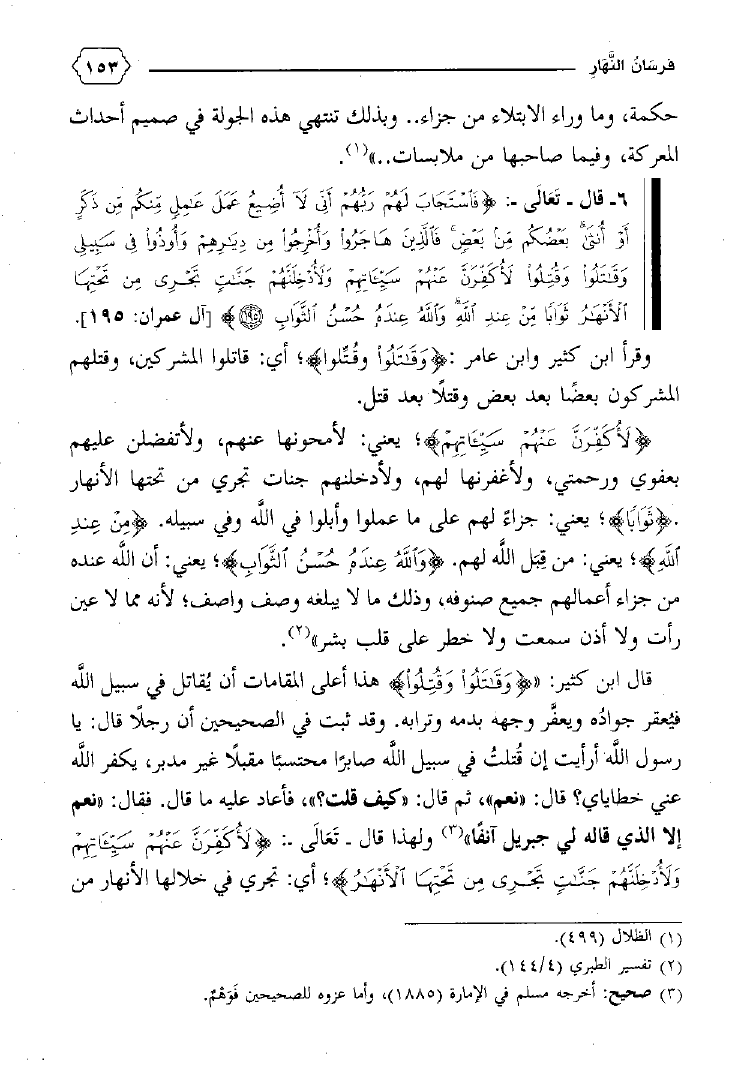 فرسَانُ النَّهَارِ ١٥٣
حكمة، وما وراء الابتلاء من جزاء.. وبذلك تنتهي هذه الجولة في صميم أحداث
المعركة، وفيما صاحبها من ملابسات..»(١).
٦- قال - تَعَالَى -: ﴿فَٱسْتَجَابَ لَهُمْ رَبُّهُمْ أَنِّى لَآ أُضِيعُ عَمَلَ عَٰمِلٍ مِّنكُم مِّن ذَكَرٍ
أَوْ أُنثَىٰ ۖ بَعْضُكُم مِّنۢ بَعْضٍ ۖ فَٱلَّذِينَ هَاجَرُوا۟ وَأُخْرِجُوا۟ مِن دِيَٰرِهِمْ وَأُوذُوا۟ فِى سَبِيلِى
وَقَٰتَلُوا۟ وَقُتِلُوا۟ لَأُكَفِّرَنَّ عَنْهُمْ سَيِّـَٔاتِهِمْ وَلَأُدْخِلَنَّهُمْ جَنَّٰتٍ تَجْرِى مِن تَحْتِهَا
ٱلْأَنْهَٰرُ ثَوَابًا مِّنْ عِندِ ٱللَّهِ ۗ وَٱللَّهُ عِندَهُۥ حُسْنُ ٱلثَّوَابِ ١٩٥﴾ [آل عمران: ١٩٥].
وقرأ ابن كثير وابن عامر :﴿وَقَٰتَلُوا۟ وقُتِّلوا﴾؛ أي: قاتلوا المشركين، وقتلهم
المشركون بعضًا بعد بعض وقتلًا بعد قتل.
﴿لَأُكَفِّرَنَّ عَنْهُمْ سَيِّـَٔاتِهِمْ﴾؛ يعني: لأمحونها عنهم، ولأتفضلن عليهم
بعفوي ورحمتي، ولأغفرنها لهم، ولأدخلنهم جنات تجري من تحتها الأنهار
.﴿ثَوَابًا﴾؛ يعني: جزاءً لهم على ما عملوا وأبلوا في اللَّه وفي سبيله. ﴿مِّنْ عِندِ
ٱللَّهِ﴾؛ يعني: من قِبَل اللَّه لهم. ﴿وَٱللَّهُ عِندَهُۥ حُسْنُ ٱلثَّوَابِ﴾؛ يعني: أن اللَّه عنده
من جزاء أعمالهم جميع صنوفه، وذلك ما لا يبلغه وصف واصف؛ لأنه مما لا عين
رأت ولا أذن سمعت ولا خطر على قلب بشر»(٢).
قال ابن كثير: «﴿وَقَٰتَلُوا۟ وَقُتِلُوا۟﴾ هذا أعلى المقامات أن يُقاتل في سبيل اللَّه
فيُعقر جوادُه ويعفَّر وجهه بدمه وترابه. وقد ثبت في الصحيحين أن رجلًا قال: يا
رسول اللَّه أرأيت إن قُتلتُ في سبيل اللَّه صابرًا محتسبًا مقبلًا غير مدبر، يكفر اللَّه
عني خطاياي؟ قال: «نعم»، ثم قال: «كيف قلت؟»، فأعاد عليه ما قال. فقال: «نعم
إلا الذي قاله لي جبريل آنفًا»(٣) ولهذا قال - تَعَالَى -: ﴿لَأُكَفِّرَنَّ عَنْهُمْ سَيِّـَٔاتِهِمْ
وَلَأُدْخِلَنَّهُمْ جَنَّٰتٍ تَجْرِى مِن تَحْتِهَا ٱلْأَنْهَٰرُ﴾؛ أي: تجري في خلالها الأنهار من
(١) الظلال (٤٩٩).
(٢) تفسير الطبري (١٤٤/٤).
(٣) صحيح: أخرجه مسلم في الإمارة (١٨٨٥)، وأما عزوه للصحيحين فَوَهْمٌ.